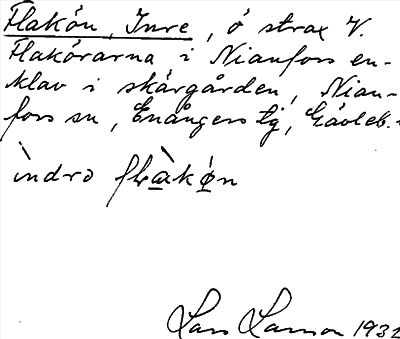 Flakön, Inre, ö strax V.
Flakörarna i Njanfors en-
klav i skärgården, Njan-
fors sn, Enångers tg, Gävleb.
ìndrɔ flàkøn
Lars Larson 1932